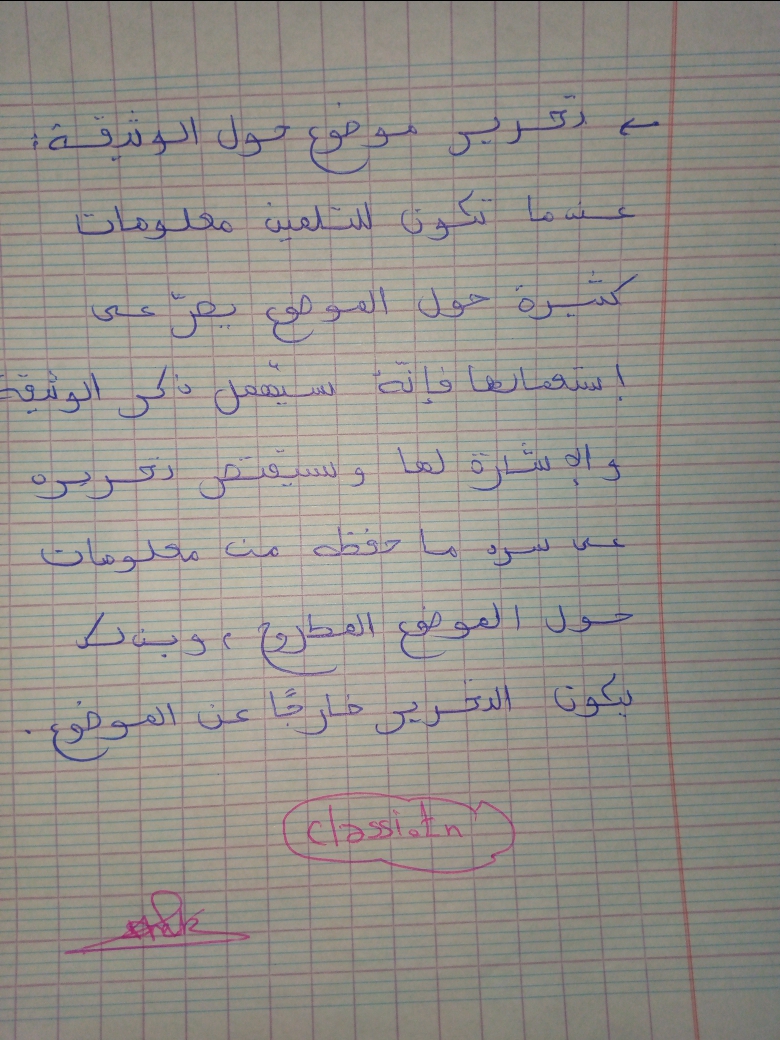 ← تحرير موضوع حول الوثيقة:
عندما تكون للتلميذ معلومات
كثيرة حول الموضوع يصرّ على
إستعمالها فإنّه سيُهمل ذكر الوثيقة
والإشارة لها وسيقتصر تحريره
على سرد ما حفظه من معلومات
حول الموضوع المطروح، وبذلك
يكون التحرير خارجًا عن الموضوع.
classi.tn